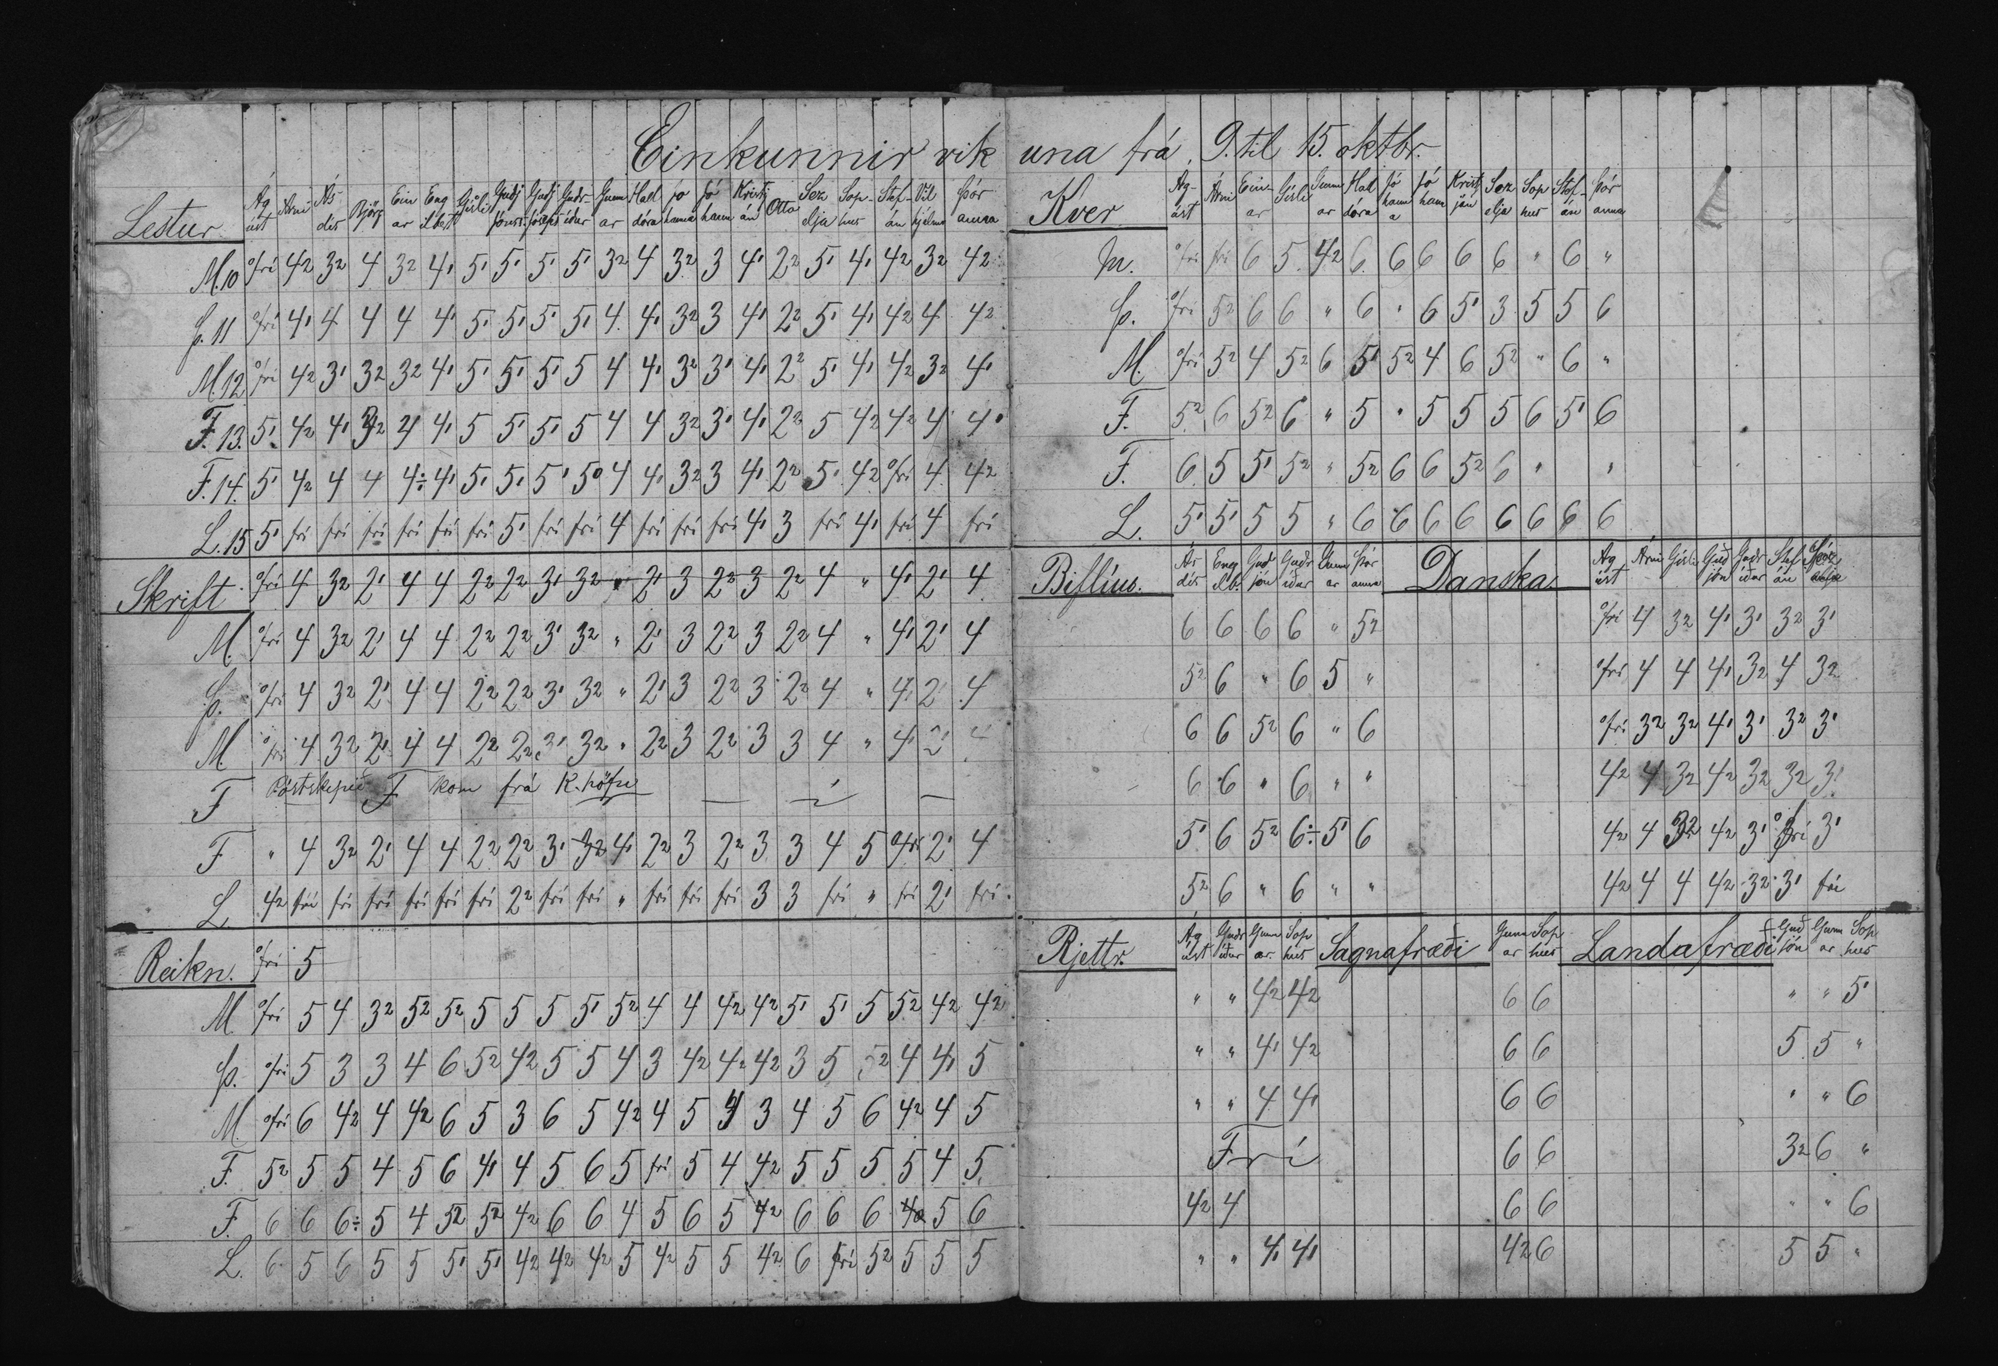 Einkunnir vikuna frá 9. til 15. oktbr.
Lestur Ágúst Árni Ásdís Björg Einar Engilbert Gísli Guðj Jónss. Guðj Jóseps Guðríður Gunnar Halldóra Jóhanna Jóhann Kristján Otto Sezelja Sophus Stefán Vilhjelmn Þóranna
M. 10 ófri 42 32 4 32 41 51 51 51 51 32 4 32 3 41 22 51 41 42 32 42
Þ. 11 ófri 41 4 4 4 41 51 51 51 51 4 41 32 3 41 22 51 41 42 4 42
M. 12 ófri 42 31 32 32 41 51 51 51 5 4 41 32 31 41 22 51 41 42 32 41
F. 13. 51 42 41 32 4 41 5 51 51 5 4 4 32 31 41 22 5 42 42 4 41
F. 14. 51 42 4 4 4÷ 41 51 51 51 50 4 41 32 3 41 22 51 42 ófri 4 42
L. 15 51 fri fri fri fri fri fri 51 fri fri 4 fri fri fri 41 3 fri 41 fri 4 fri
Skrift ófri 4 32 21 4 4 22 22 31 32 " 21 3 22 3 22 4 " 41 21 4
M. ófri 4 32 21 4 4 22 22 31 32 " 21 3 22 3 22 4 " 41 21 4
Þ. ófri 4 32 21 4 4 22 22 31 32 " 21 3 22 3 22 4 " 41 21 4
M ófri 4 32 21 4 4 22 22 31 32 " 22 3 22 3 3 4 " 41 21 4
F Póstskipið F kom frá K.höfn — — —
F " 4 32 21 4 4 22 22 31 32 41 22 3 22 3 3 4 5 ófri 21 4
L. 42 fri fri fri fri fri fri 22 fri fri " fri fri fri 3 3 fri " fri 21 fri
Reikn. ófri 5
M ófri 5 4 32 52 52 5 5 5 51 52 4 4 42 42 51 51 5 52 42 42
Þ. ófri 5 3 3 4 6 52 42 5 5 4 3 42 42 42 3 5 52 4 41 5
M. ófri 6 42 4 42 6 5 3 6 5 42 4 5 4 3 4 5 6 42 4 5
F. 52 5 5 4 5 6 41 4 5 6 5 fri 5 4 42 5 5 5 5 4 5
F. 6 6 6÷ 5 4 52 52 42 6 6 4 5 6 5 42 6 6 6 42 5 6
L. 6 5 6 5 5 51 51 42 42 42 5 42 5 5 42 6 fri 52 5 5 5
Kver Ágúst Árni Einar Gísli Gunnar Halldóra Jóhanna Jóhann Kristján Sezelja Sophus Stefán Þóranna
M. ófri fri 6 5 42 6 6 6 6 6 " 6 "
Þ. ófri 52 6 6 " 6 " 6 51 3 5 5 6
M. ófri 52 4 52 6 51 52 4 6 52 " 6 "
F. 52 6 52 6 " 5 " 5 5 5 6 51 6
F. 6 5 51 52 " 52 6 6 52 6 " "
L. 51 51 5 5 " 6 6 6 6 6 6 6 6
Biflíus. Ásdís Engilb. Guðjón Guðríður Gunnar Þóranna Danska Ágúst Árni Gísli Guðjón Guðríður Stefán
6 6 6 6 " 52 ófri 4 32 41 31 32 31
52 6 " 6 5 " ófri 4 4 41 32 4 32
6 6 52 6 " 6 ófri 32 32 41 31 32 31
6 6 " 6 " " 42 4 32 42 32 32 31
51 6 52 6÷ 51 6 42 4 32 42 31 ófri 31
52 6 " 6 " " 42 4 4 42 32 31 fri
Rjettr. Ágúst Guðríður Gunnar Sophus Sagnafræði Gunnar Sophus Landafræði Guðjón Gunnar Sophus
" " 42 42 6 6 " " 51
" " 41 42 6 6 5 5 "
" " 4 41 6 6 " " 6
Frí 6 6 32 6 "
42 4 6 6 " " 6
" " 41 41 42 6 5 5 "